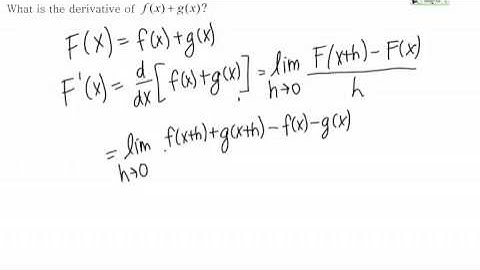 What is the derivative of f(x)+g(x)?
F(x) = f(x)+g(x)
F'(x) = d/dx [f(x)+g(x)] = lim h→0 F(x+h) − F(x) / h
= lim h→0 f(x+h)+g(x+h)−f(x)−g(x)